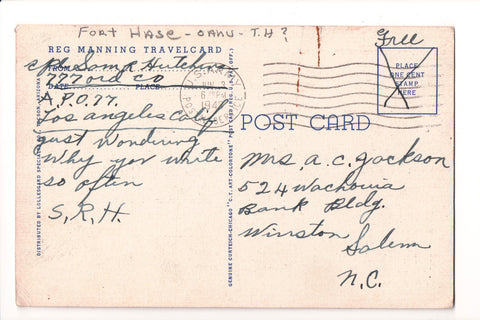 FORT HASE - OAHU - T.H?
REG MANNING TRAVELCARD
Free
FROM Cpl Sam R Hutchins
777 Ord Co
DATE PLACE
A.P.O. 77.
Los angeles Calif
just Wondering
Why you write
so often
S.R.H.
U.S. ARMY
PLACE
ONE CENT
STAMP
HERE
POST CARD
Mrs. a. C. Jackson
524 Wachovia
Bank Bldg.
Winston Salem
N.C.
DISTRIBUTED BY LOLLESGARD SPECIALTY CO., TUCSON, ARIZONA
GENUINE CURTEICH-CHICAGO "C.T. ART-COLORTONE" POST CARD (REG. U.S. PAT. OFF.)